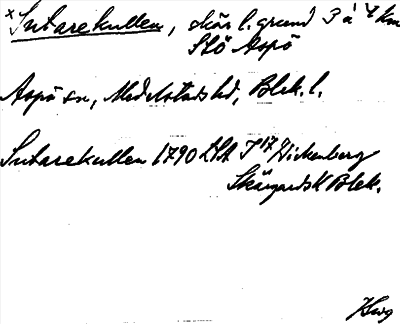 x Sutarekullen, skär l. grund 3 à 4 km
StÖ Aspö
Aspö sn, Medelstads hd, Blek. l.
Sutarekullen 1790 LSA J 17 Wickenberg
Skärgårds K Blek.